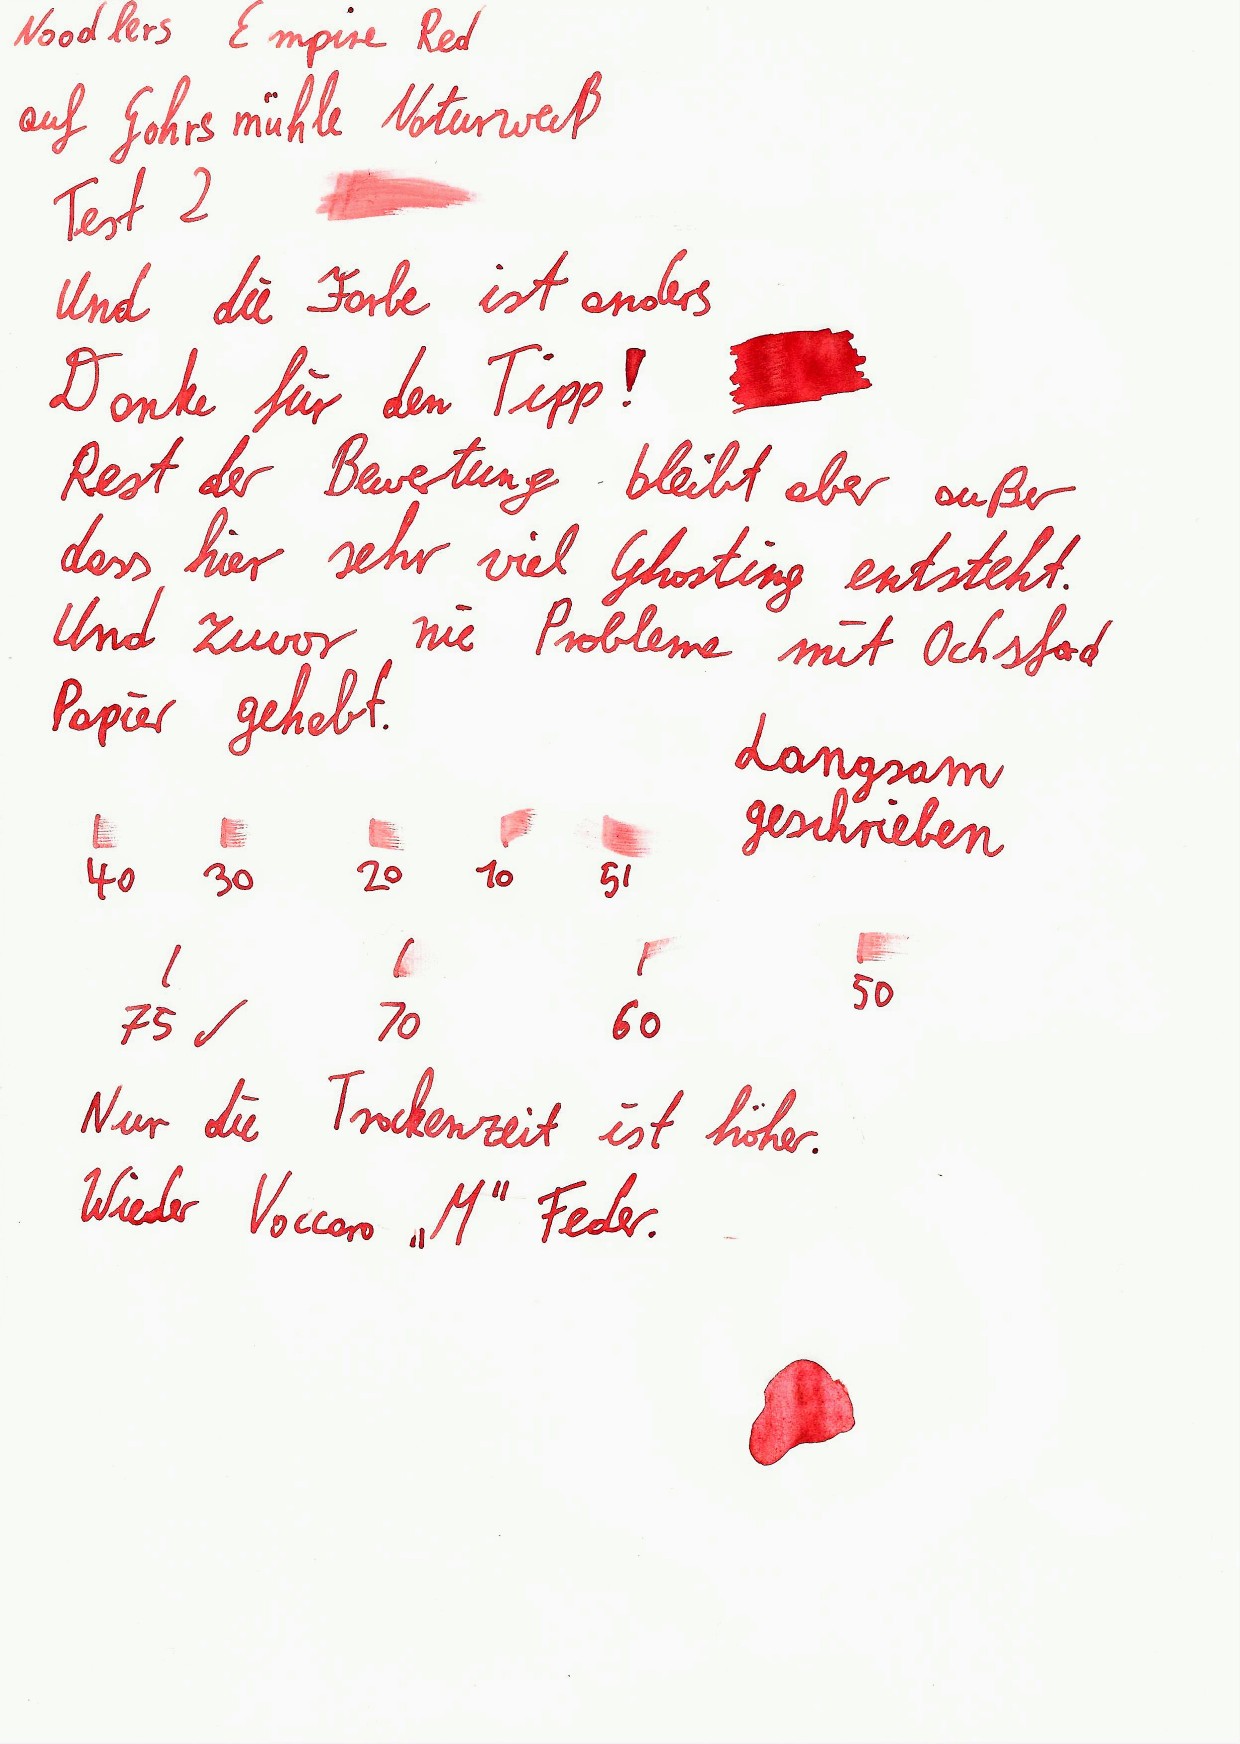 Noodlers Empire Red
auf Gohrsmühle Naturweiß
Test 2
Und die Farbe ist anders
Danke für den Tipp!
Rest der Bewertung bleibt aber außer
dass hier sehr viel Ghosting entsteht.
Und zuvor nie Probleme mit Ochsford
Papier gehabt.
Langsam
geschrieben
40 30 20 10 51
75 ✓ 70 60 50
Nur die Trockenzeit ist höher.
Wieder Vaccaro „M" Feder.